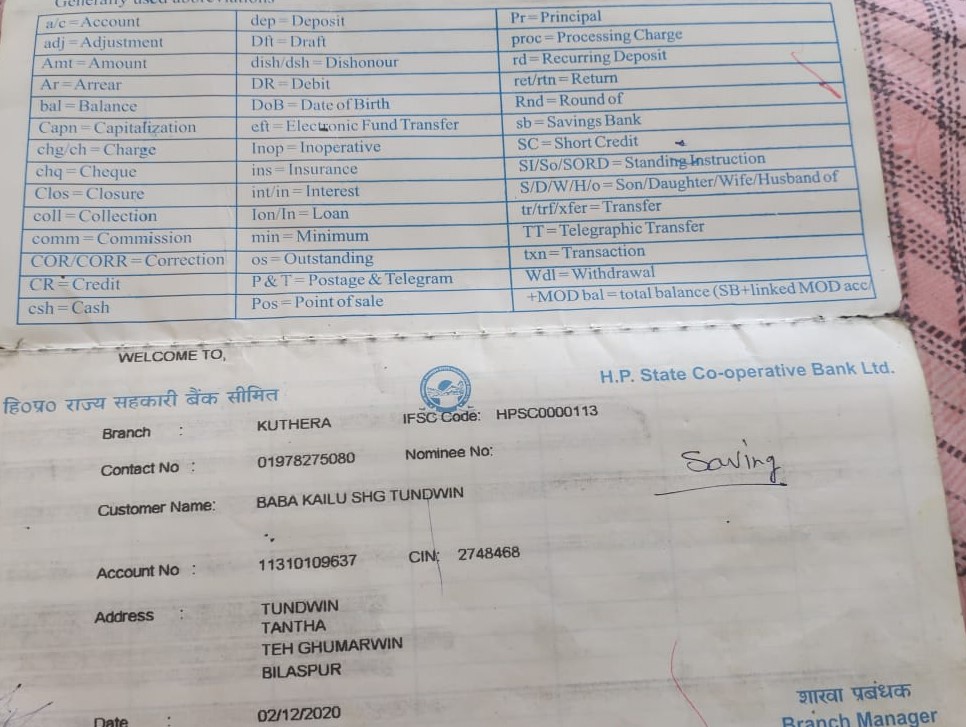 Generally used abbreviations
a/c = Account dep = Deposit Pr = Principal
adj = Adjustment Dft = Draft proc = Processing Charge
Amt = Amount dish/dsh = Dishonour rd = Recurring Deposit
Ar = Arrear DR = Debit ret/rtn = Return
bal = Balance DoB = Date of Birth Rnd = Round of
Capn = Capitalization eft = Electronic Fund Transfer sb = Savings Bank
chg/ch = Charge Inop = Inoperative SC = Short Credit
chq = Cheque ins = Insurance SI/So/SORD = Standing Instruction
Clos = Closure int/in = Interest S/D/W/H/o = Son/Daughter/Wife/Husband of
coll = Collection Ion/In = Loan tr/trf/xfer = Transfer
comm = Commission min = Minimum TT = Telegraphic Transfer
COR/CORR = Correction os = Outstanding txn = Transaction
CR = Credit P & T = Postage & Telegram Wdl = Withdrawal
csh = Cash Pos = Point of sale +MOD bal = total balance (SB+linked MOD acc
WELCOME TO,
हि०प्र० राज्य सहकारी बैंक सीमित H.P. State Co-operative Bank Ltd.
Branch : KUTHERA IFSC Code: HPSC0000113
Contact No : 01978275080 Nominee No:
Saving
Customer Name: BABA KAILU SHG TUNDWIN
Account No : 11310109637 CIN: 2748468
Address : TUNDWIN
TANTHA
TEH GHUMARWIN
BILASPUR
शाखा प्रबंधक
Date : 02/12/2020 Branch Manager